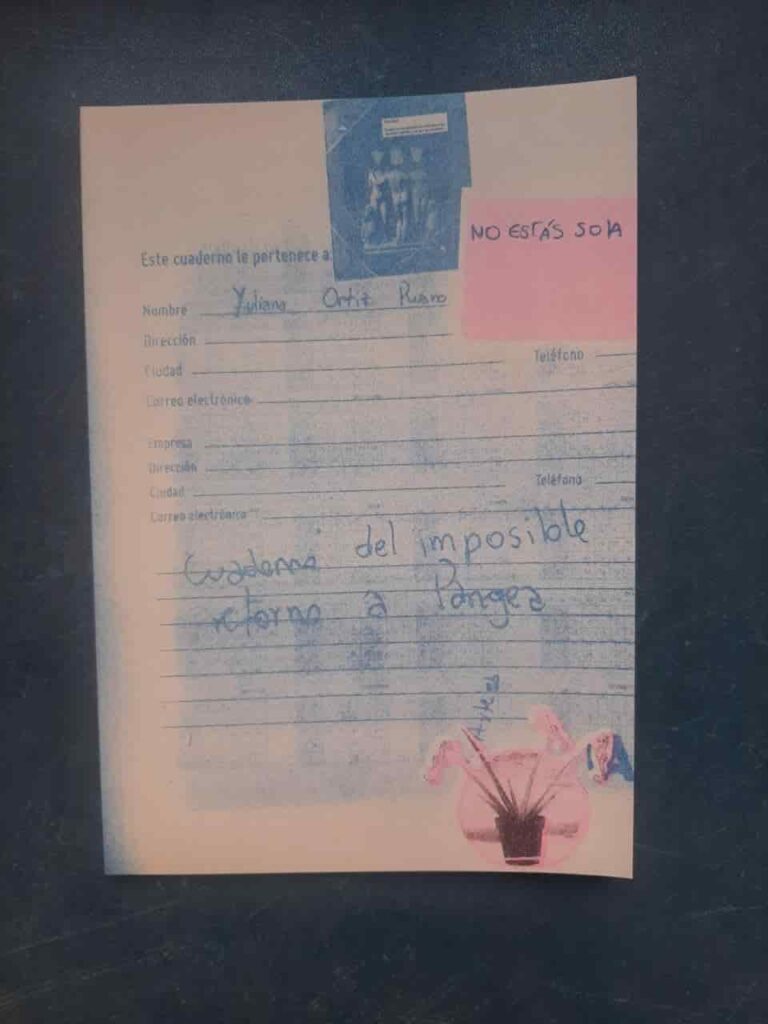 NO ESTÁS SOlA
Este cuaderno le pertenece a:
Nombre Yuliana Ortiz Ruano
Dirección
Ciudad Teléfono
Correo electrónico
Empresa
Dirección
Ciudad Teléfono
Correo electrónico
Cuaderno del imposible
retorno a Pangea